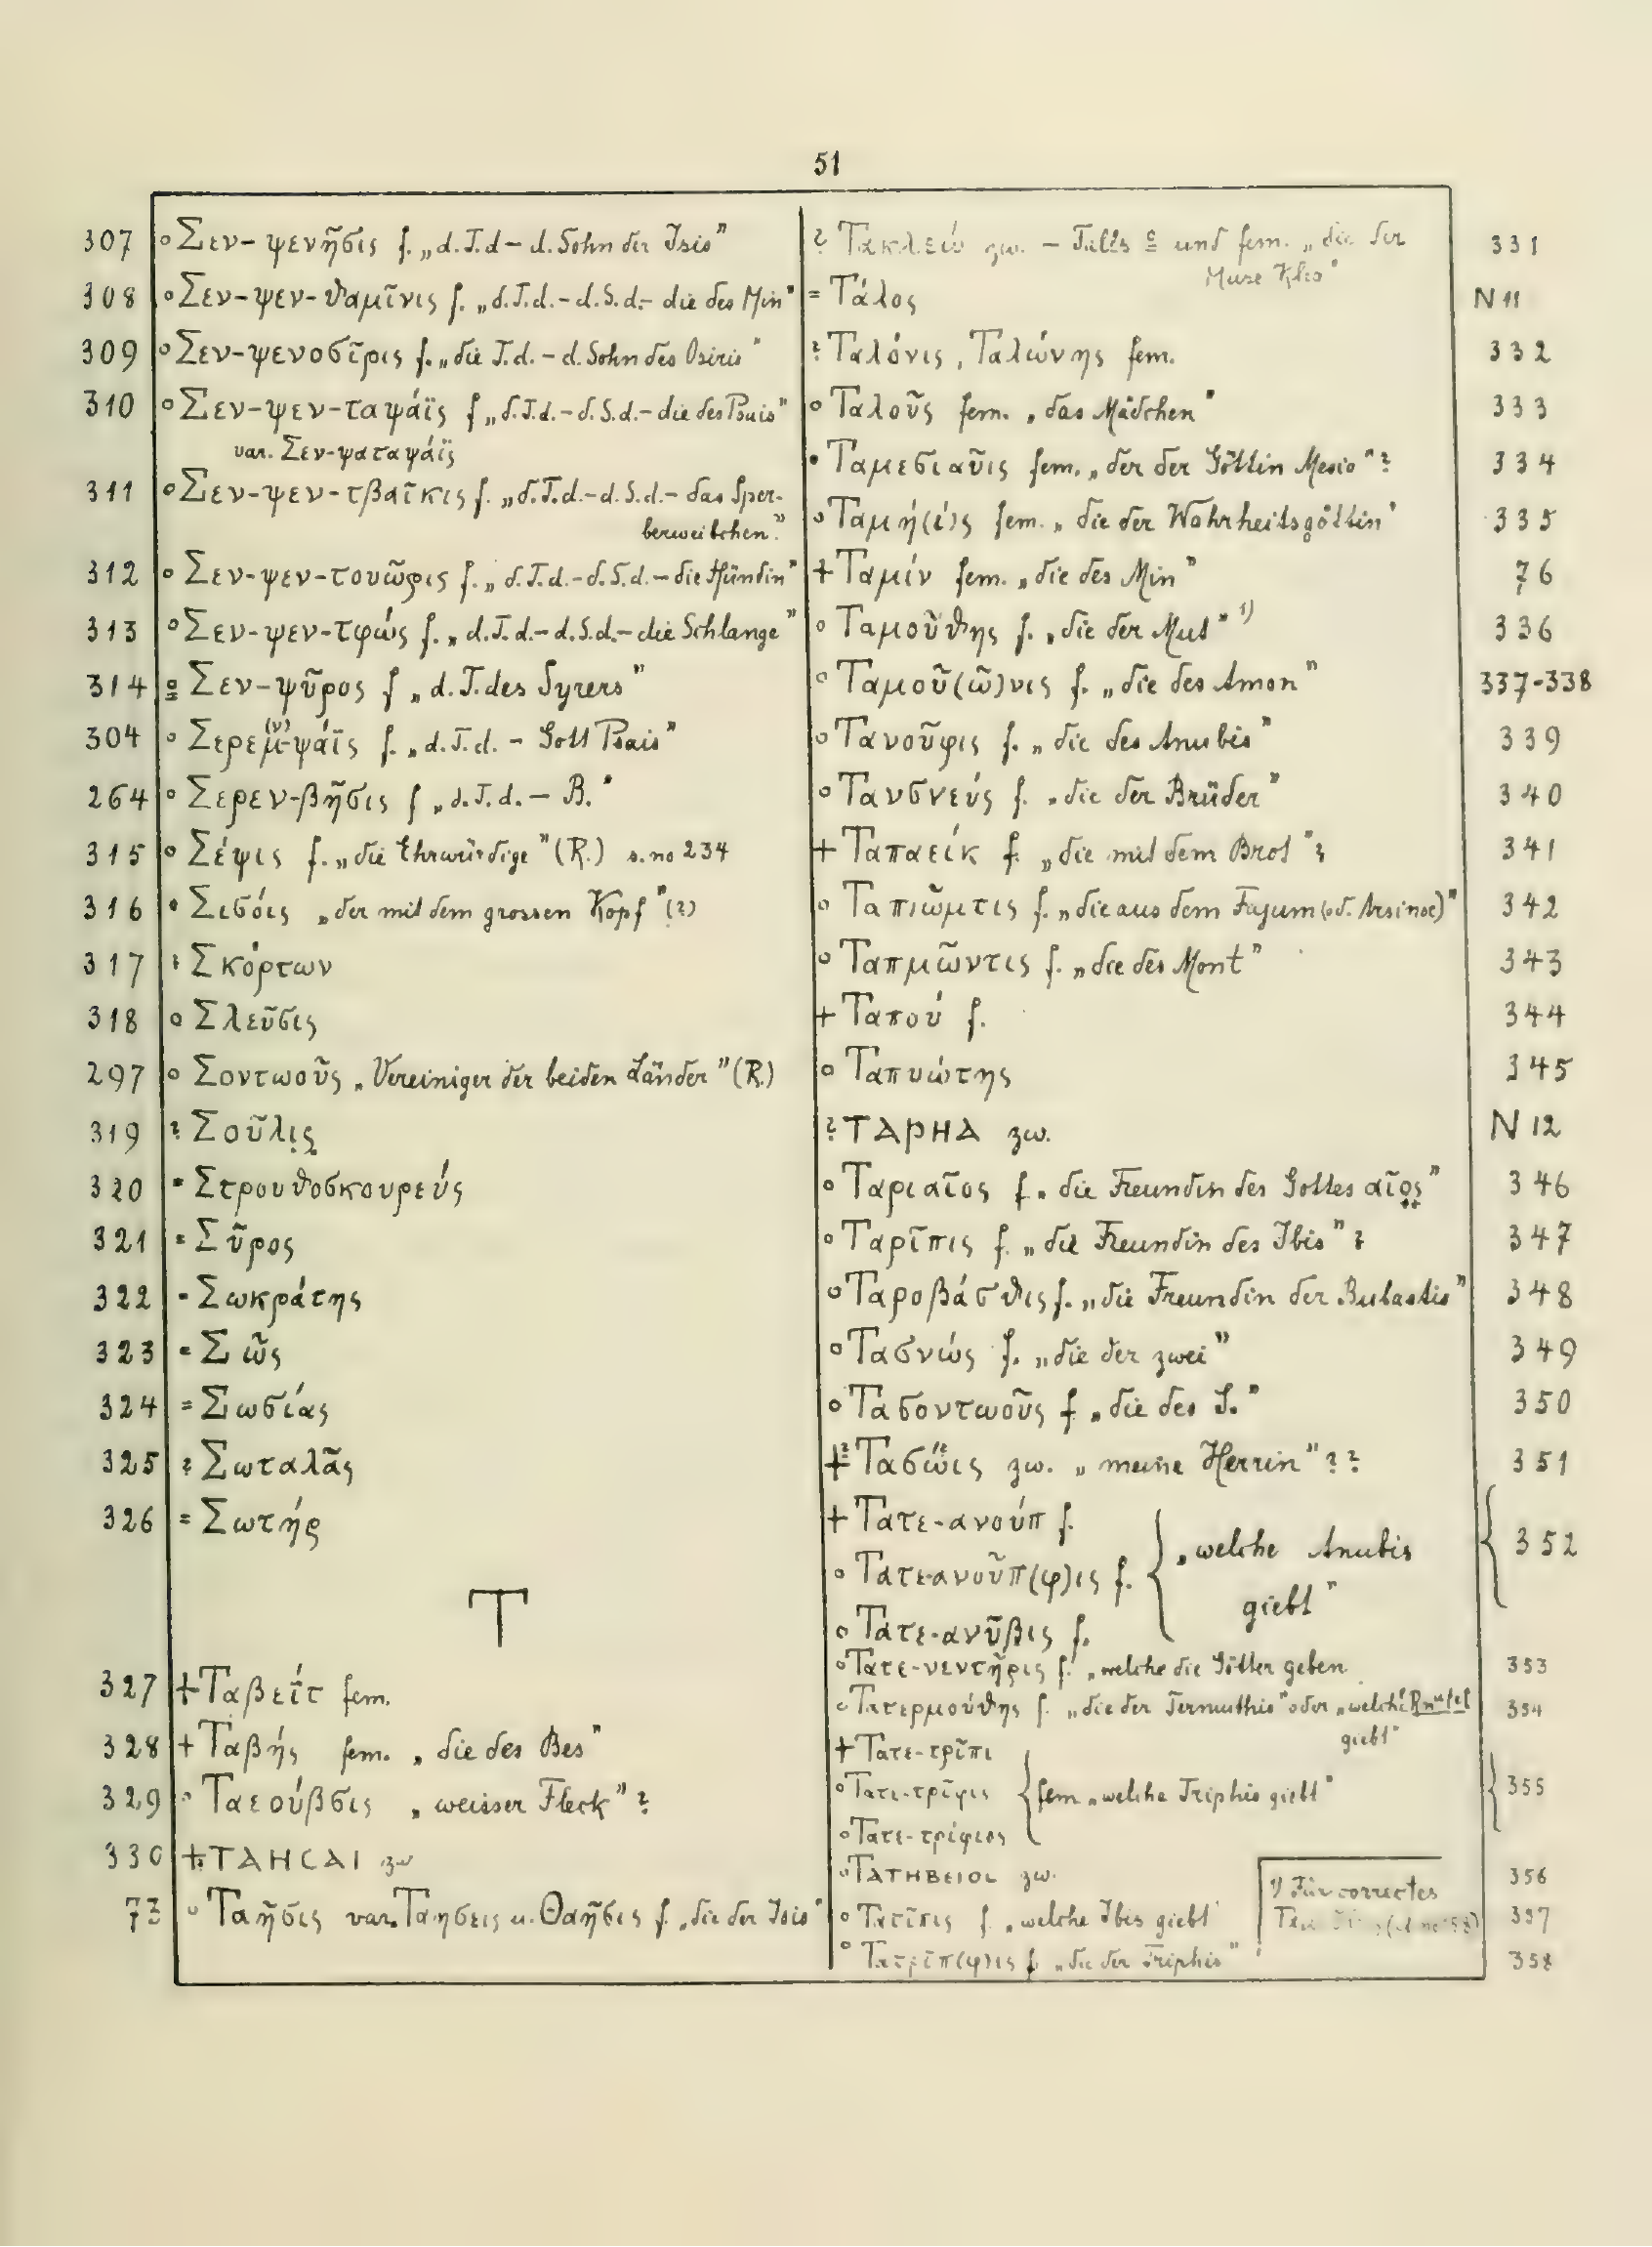 51
307 ο Σεν-ψενῆσις f. „d.T.d-d.Sohn der Isis"
308 ο Σεν-ψεν-θαμῖνις f. „d.T.d.-d.S.d.- die des Min"
309 ο Σεν-ψενοσῖρις f. „die T.d.-d.Sohn des Osiris"
310 ο Σεν-ψεν-ταψάϊς f „d.T.d.-d.S.d.-die des Psais"
var. Σεν-ψαταψάϊς
311 ο Σεν-ψεν-τβαῖκις f. „d.T.d.-d.S.d.- das Sper-
berweibchen."
312 ο Σεν-ψεν-τουῶφρις f. „d.T.d.-d.S.d.-die Hündin"
313 ο Σεν-ψεν-τφώς f. „d.T.d.-d.S.d.-die Schlange"
314 ο Σεν-ψῦρος f „d.T.des Syrers"
304 ο Σερεμ(ν)-ψάϊς f. „d.T.d. - Gott Psais"
264 ο Σερεν-βῆσις f „d.T.d. - B."
315 ο Σέψις f. „die Ehrwürdige" (R.) s.no 234
316 • Σισόις „der mit dem grossen Kopf" (?)
317 ? Σκόρτων
318 ο Σλεῦσις
297 ο Σοντωοῦς „Vereiniger der beiden Länder" (R.)
319 ? Σοῦλις
320 = Στρουθοσκουρεύς
321 = Σῦρος
322 = Σωκράτης
323 = Σῶς
324 = Σωσίας
325 ? Σωταλᾶς
326 = Σωτήρ
T
327 + Ταβεΐτ fem.
328 + Ταβής fem. „die des Bes"
329 ο Ταεούβσις „weisser Fleck"?
330 + ΤΑΗCΑΙ zw
73 ο Ταῆσις var. Ταησεις u. Θαῆσις f. „die der Isis"
? Τακλειώ zw. - Falls und fem. „die der 331
Muse Klio"
= Τάλος N 11
? Ταλόνις, Ταλώνης fem. 332
ο Ταλοῦς fem. „das Mädchen" 333
• Ταμεσιαῦις fem. „der der Göttin Mesio"? 334
ο Ταμή(ί)ς fem. „die der Wahrheitsgöttin" 335
+ Ταμίν fem. „die des Min" 76
ο Ταμοῦθης f. „die der Mut" 1) 336
ο Ταμοῦ(ῶ)νις f. „die des Amon" 337-338
ο Τανοῦφις f. „die des Anubis" 339
ο Τανσνεύς f. „die der Brüder" 340
+ Ταπαείκ f. „die mit dem Brot"? 341
ο Ταπιῶμτις f. „die aus dem Fajum (od. Arsinoe)" 342
ο Ταπμῶντις f. „die des Mont" 343
+ Ταπού f. 344
ο Ταπυώτης 345
? ΤΑΡΗΑ zw. N 12
ο Ταριαῖος f. „die Freundin des Gottes αῖος" 346
ο Ταρῖπις f. „die Freundin des Ibis"? 347
ο Ταροβάσθις f. „die Freundin der Bubastis" 348
ο Τασνώς f. „die der zwei" 349
ο Τασοντωοῦς f „die des S." 350
+ Τασῶις zw. „meine Herrin"?? 351
+ Τατε-ανούπ f.
„welche Anubis 352
ο Τατε-ανοῦπ(φ)ις f.
giebt"
ο Τατε-ανῦβις f.
ο Τατε-νεντῆρις f. „welche die Götter geben 353
ο Τατερμούθης f. „die der Termuthis" oder „welche 354
giebt"
+ Τατε-τρῖπι
ο Τατε-τρῖφις fem „welche Triphis giebt" 355
ο Τατε-τρίφιος
ο ΤΑΤΗΒΕΙΟC zw. 356
ο Τατῖπις f. „welche Ibis giebt" 357
ο Τατρῖπ(φ)ις f. „die der Triphis" 358
1) Für correctes